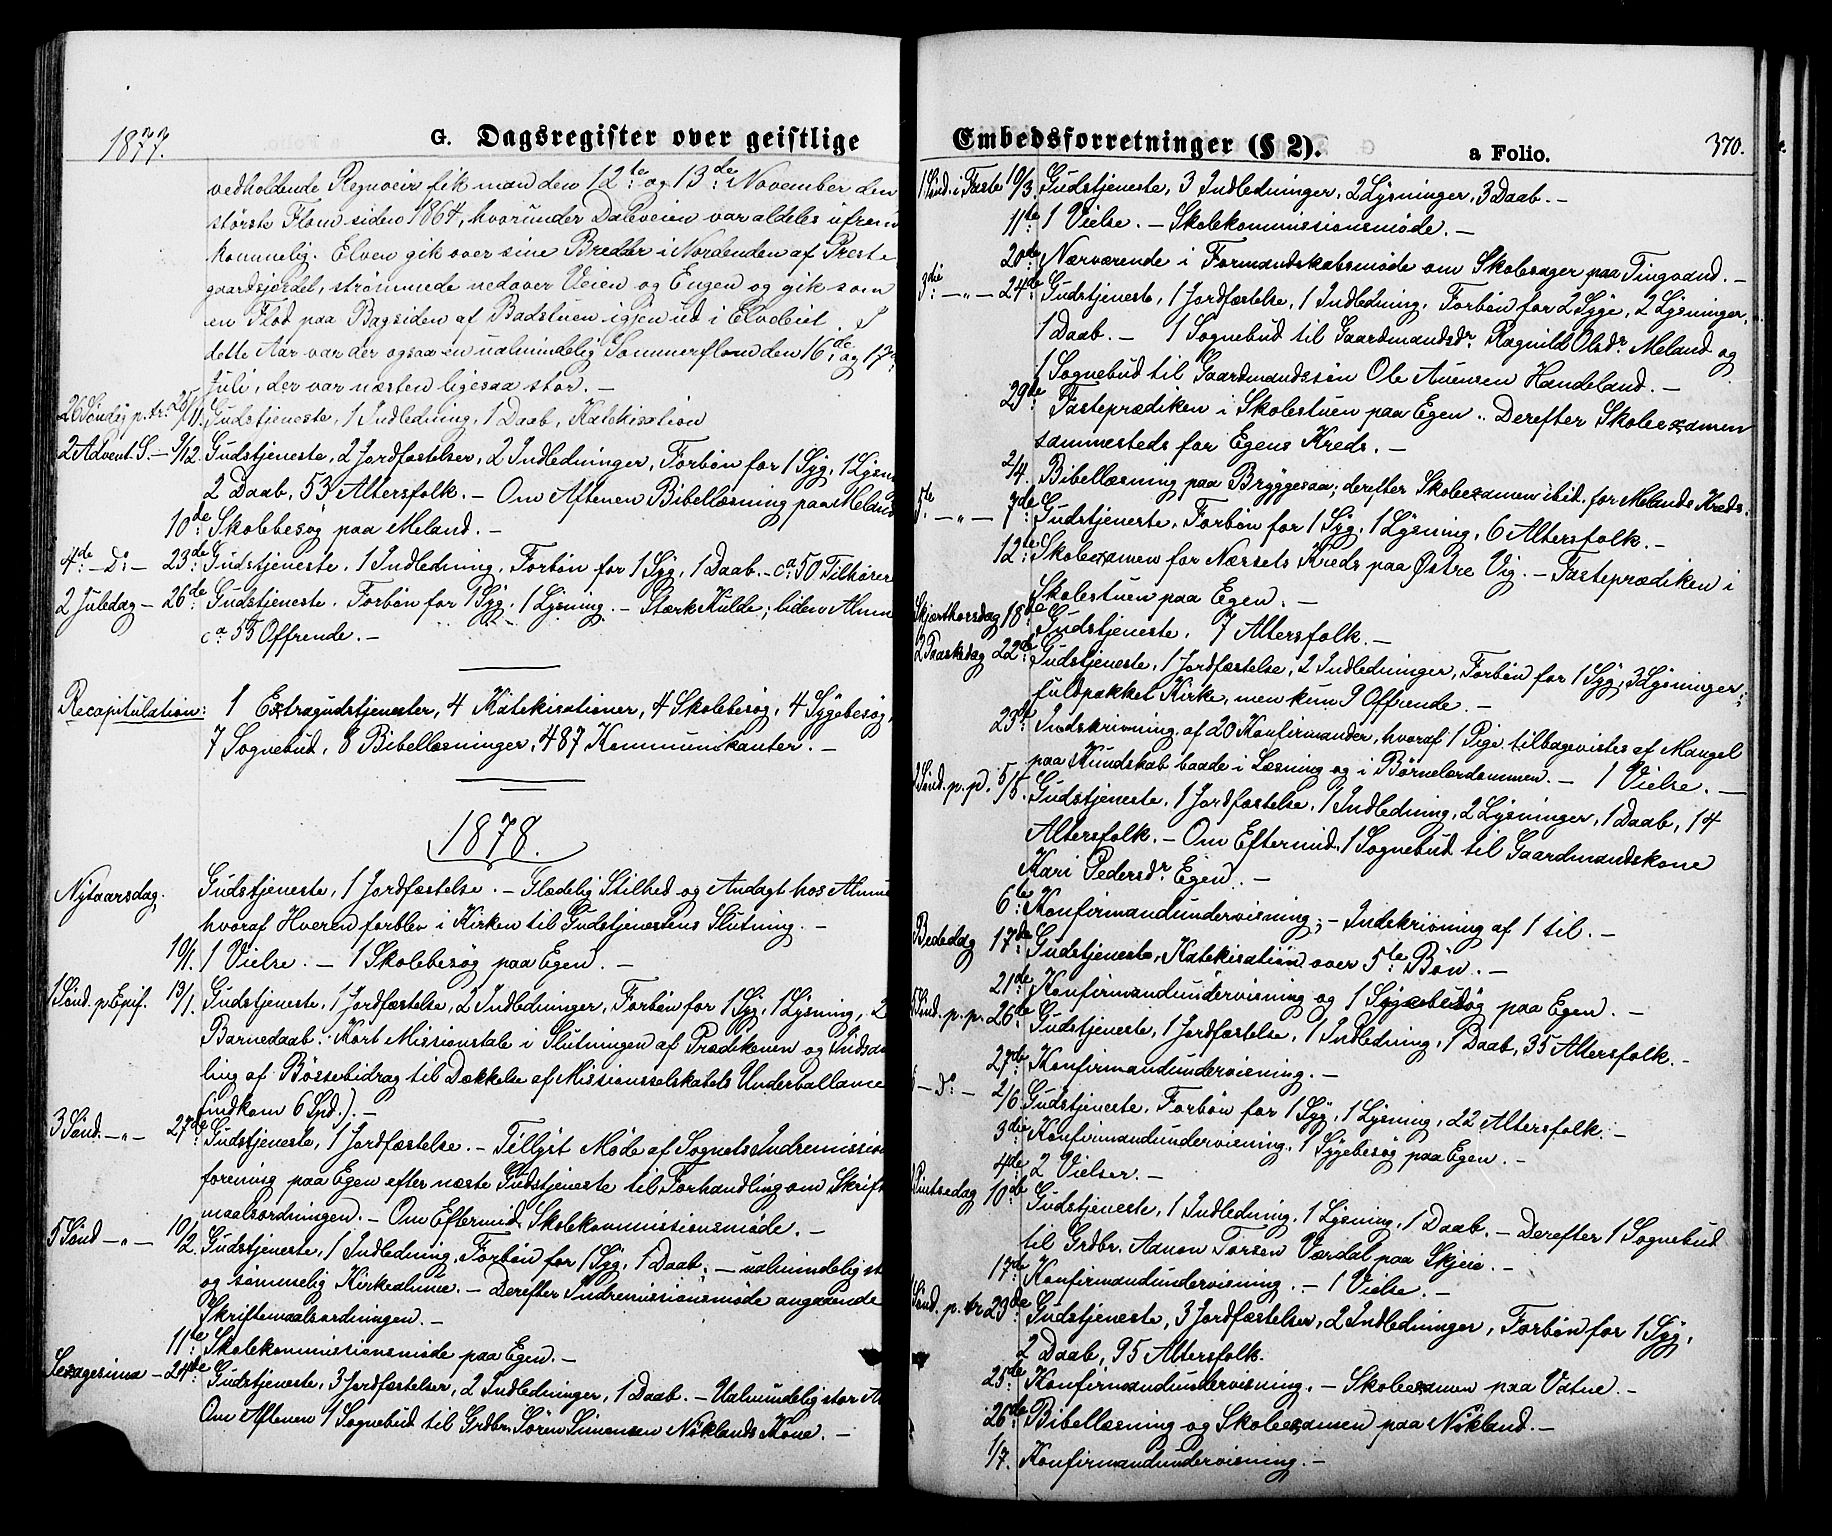 1877.
G. Dagsregister over geistlige
vedholdende Regnveir fik man den 12te og 13de November den
største Flom siden 1864, hvorunder Dalveien var aldeles ufrem
kommelig. Elven gik over sine Bredder i Nordenden af Preste
gaardsjordet, strømmede nedover Veien og Engen og gik som
en Flod paa Bagsiden af Badstuen igjen ud i Elveleiet. I
dette Aar var der ogsaa en ualmindelig Sommerflom den 16de og 17:
Juli, der var næsten ligesaa stor. –
26 Søndag p. tr. 25/11. Gudstjeneste, 1 Indledning, 1 Daab, Katekisation
2 Advent S. – 9/12. Gudstjeneste, 2 Jordfæstelser, 2 Indledninger, Forbøn for 1 Syg, 1 Lysn
2 Daab, 53 Altersfolk. – Om Aftenen Bibellæsning paa Meland
10de Skolebesøg paa Meland. –
4de – Do – 23de Gudstjeneste, 1 Indledning, Forbøn for 1 Syg, 1 Daab. – ca 50 Tilhører
2 Juledag – 26de Gudstjeneste. Forbøn for 1 Syg, 1 Lysning. – Stærk Kulde; liden Almu
ca 55 Offrende. –
Recapitulation: 1 Extragudstjenester, 4 Katekisationer, 4 Skolebesøg, 4 Sygebesøg,
7 Sognebud, 8 Bibellæsninger, 487 Kommunikanter. –
1878.
Nytaarsdag. Gudstjeneste, 1 Jordfæstelse. – Glædelig Stilhed og Andagt hos Almu
hvoraf Hveren forblev i Kirken til Gudstjenestens Slutning. –
10/1. 1 Vielse. – 1 Skolebesøg paa Egen. –
1 Sønd. p Epif. 13/1. Gudstjeneste, 1 Jordfæstelse, 2 Indledninger, Forbøn for 1 Syg, 1 Lysning, 2
Barnedaab. Kort Missionstale i Slutningen af Prædikenen og Indsam
ling af Bøssebidrag til Dækkelse af Missionsselskabets Underballance
(indkom 6 Spd.). –
3 Sønd. – „ – 27de Gudstjeneste, 1 Jordfæstelse. – Tillyst Møde af Sognets Indremission
forening paa Egen efter næste Gudstjeneste til Forhandling om Skrift
maalsordningen. – Om Eftermid. Skolekommissionsmøde. –
5 Sønd – „ – 10/2. Gudstjeneste, 1 Indledning, Forbøn for 1 Syg, 1 Daab; – ualmindelig st
og sømmelig Kirkealmue. – Derefter Indremissionsmøde angaaende
Skriftemaalsordningen. –
11te Skolekommissionsmøde paa Egen. –
Sexagesima – 24de Gudstjeneste, 3 Jordfæstelser, 2 Indledninger, 1 Daab. – Ualmindelig stor A
Om Aftenen 1 Sognebud til Grdbr. Søren Simensen Nøklands Kone. –
Embedsforretninger (§ 2).
a Folio.
370.
1 Sønd. i Faste 10/3. Gudstjeneste, 3 Indledninger, 2 Lysninger, 3 Daab. –
11te 1 Vielse. – Skolekommissionsmøde. –
20de Nærværende i Formandskabsmøde om Skolesager paa Tingvand. –
3die – „ – 24de Gudstjeneste, 1 Jordfæstelse, 1 Indledning, Forbøn for 2 Syge, 2 Lysninger,
1 Daab. – 1 Sognebud til Gaardmandsdr. Ragnild Olsdr. Meland og
1 Sognebud til Gaardmandssøn Ole Aanensen Handeland. –
29de Fasteprædiken i Skolestuen paa Egen. Derefter Skoleexamen
sammesteds for Egens Kreds. –
2/4. Bibellæsning paa Bryggesaa; derefter Skoleexamen ibid. for Melands Kreds.
5te – „ – 7de Gudstjeneste, Forbøn for 1 Syg, 1 Lysning, 6 Altersfolk. –
12te Skoleexamen for Næssets Kreds paa Østre Vig. – Fasteprædiken i
Skolestuen paa Egen. –
Skjærthorsdag 18de Gudstjeneste, 7 Altersfolk. –
2 Paaskedag 22de Gudstjeneste, 1 Jordfæstelse, 2 Indledninger, Forbøn for 1 Syg, 3 Lysninger;
fuldpakket Kirke, men kun 9 Offrende. –
23de Indskrivning af 20 Konfirmander, hvoraf 1 Pige tilbagevistes af Mangel
paa Kundskab baade i Læsning og i Børnelærdommen. – 1 Vielse. –
2 Sønd. p. p. 5/5. Gudstjeneste, 1 Jordfæstelse, 1 Indledning, 2 Lysninger, 1 Daab, 14
Altersfolk. – Om Eftermid. 1 Sognebud til Gaardmandskone
Kari Pedersdr. Egen. –
6te Konfirmandundervisning; – Indskrivning af 1 til. –
Bededag 17de Gudstjeneste, Katekisation over 5te Bøn. –
21de Konfirmandundervisning og 1 Sygebesøg paa Egen. –
5 Sønd. p. p. 26de Gudstjeneste, 1 Jordfæstelse, 1 Indledning, 1 Daab, 35 Altersfolk. –
27de Konfirmandundervisning. –
– Do – 2/6 Gudstjeneste, Forbøn for 1 Syg, 1 Lysning, 22 Altersfolk. –
3die Konfirmandundervisning, 1 Sygebesøg paa Egen. –
4de 2 Vielser. –
Pintsedag 10de Gudstjeneste, 1 Indledning, 1 Lysning, 1 Daab. – Derefter 1 Sognebud
til Grdbr. Aanon Torsen Værdal paa Skjeie. –
17de Konfirmandundervisning. – 1 Vielse. –
Sønd. p. tr 23de Gudstjeneste, 3 Jordfæstelser, 2 Indledninger, Forbøn for 1 Syg,
2 Daab, 95 Altersfolk.
25de Konfirmandundervisning. – Skoleexamen paa Vatne. –
26de Bibellæsning og Skoleexamen paa Nøkland. –
1/7. Konfirmandundervisning. –